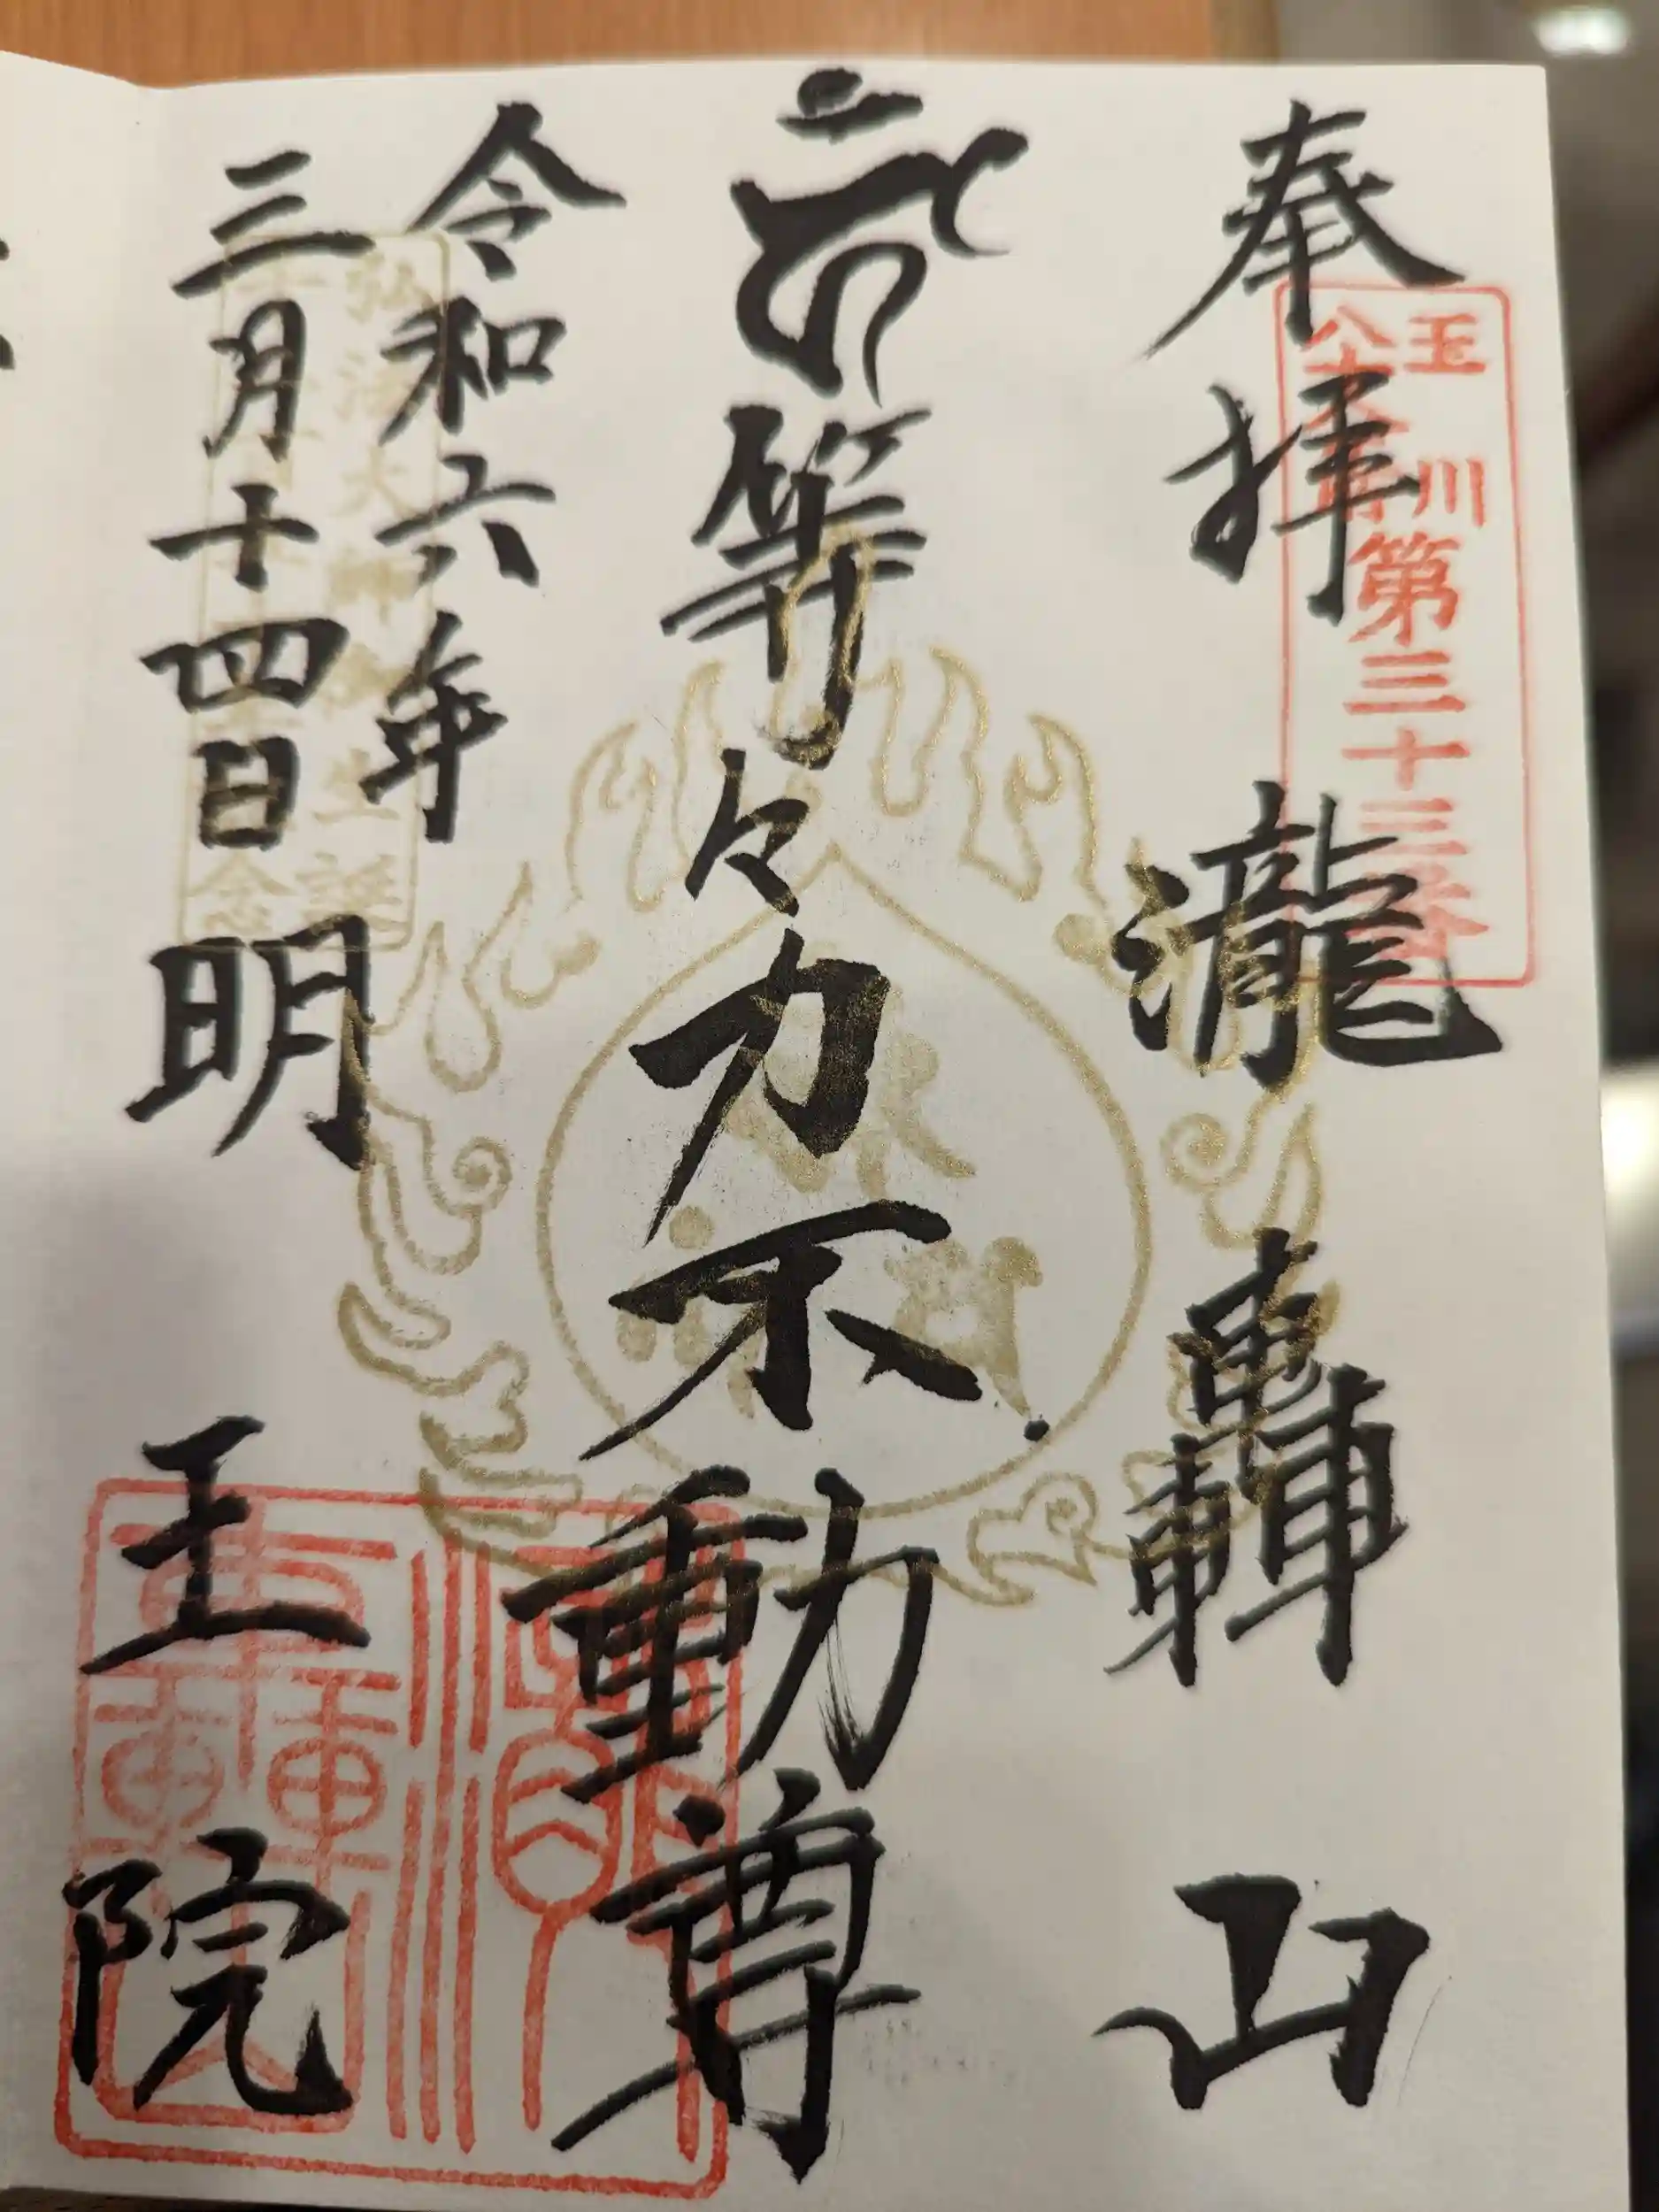 奉拝
瀧轟山
玉川
八十八ヶ所
第三十三番
等々力不動尊
令和六年
三月十四日
弘法大師御生誕
明王院